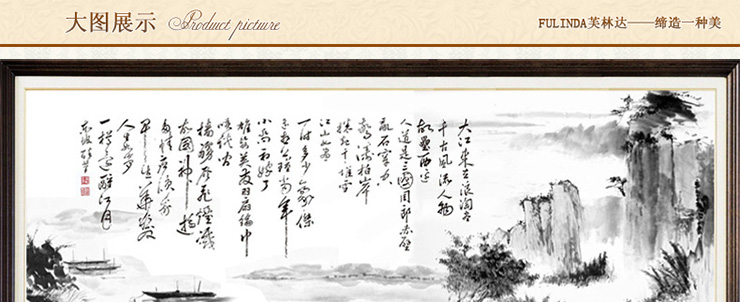 大图展示
Product picture
FULINDA芙林达——缔造一种美
大江東去浪淘尽
千古風流人物
故壘西边
人道是三國周郎赤壁
乱石穿空
驚濤拍岸
捲起千堆雪
江山如畫
一时多少豪傑
遥想公瑾當年
小喬初嫁了
雄姿英发羽扇綸巾
談笑间
檣櫓灰飛煙滅
故國神游
多情應笑我
早生華髮
人生如夢
一樽还酹江月